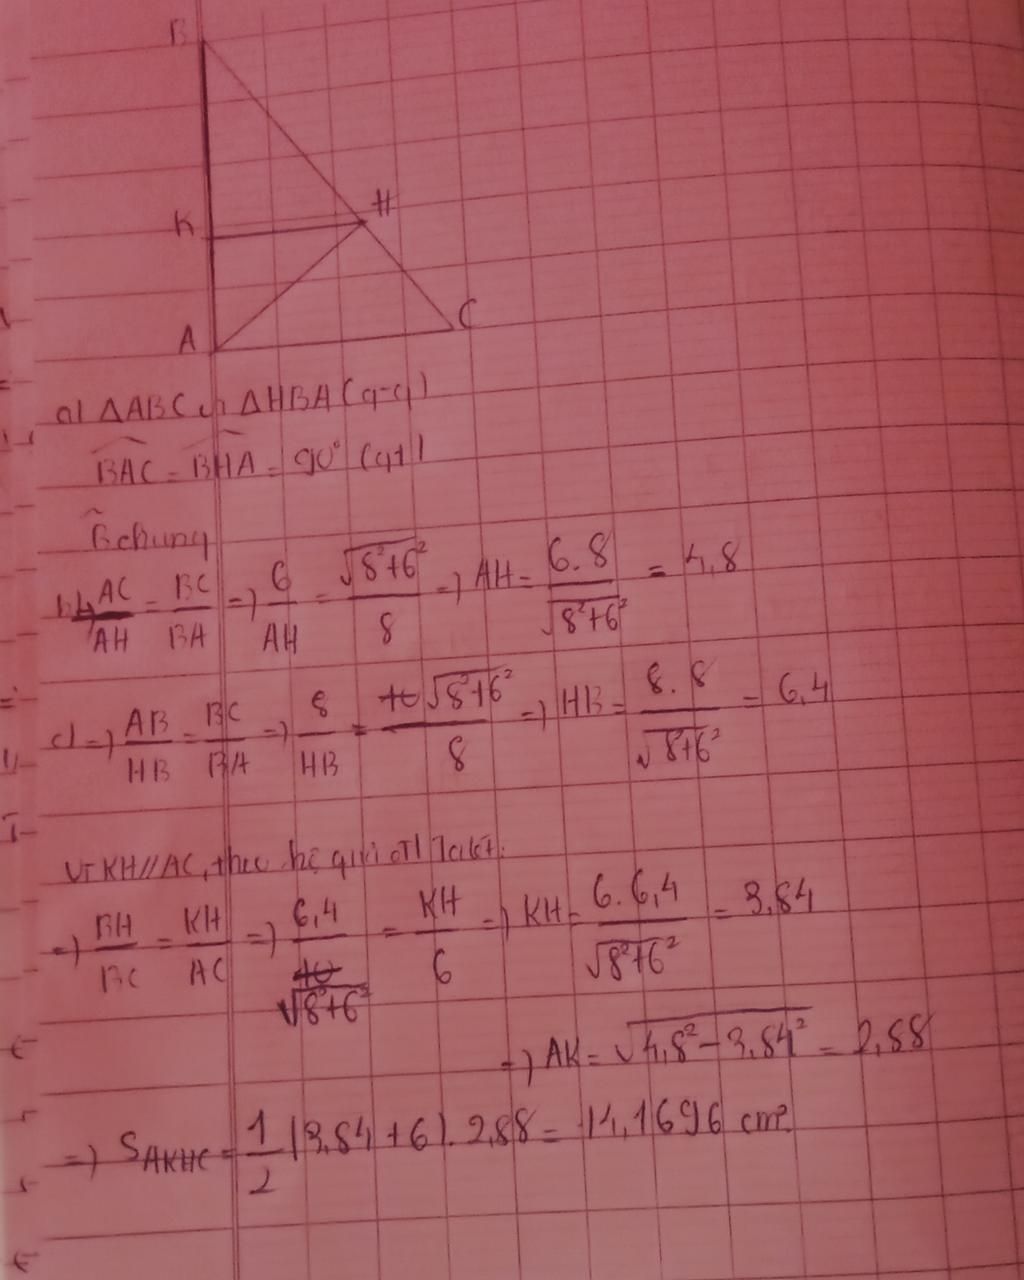 B
K
H
A
C
a) ΔABC ∽ ΔHBA (g-g)
BAC = BHA = 90° (gt)
B chung
b) AC/AH = BC/BA => 6/AH = √(8²+6²)/8 => AH = 6.8/√(8²+6²) = 4,8
c) => AB/HB = BC/BA => 8/HB = √(8²+6²)/8 => HB = 8.8/√(8²+6²) = 6,4
Vì KH//AC, theo hệ quả đl Talet:
=> BH/BC = KH/AC => 6,4/√(8²+6²) = KH/6 => KH = 6.6,4/√(8²+6²) = 3,84
=> AK = √(4,8² - 3,84²) = 2,88
=> S AKHC = 1/2 (3,84 + 6). 2,88 = 14,1696 cm²